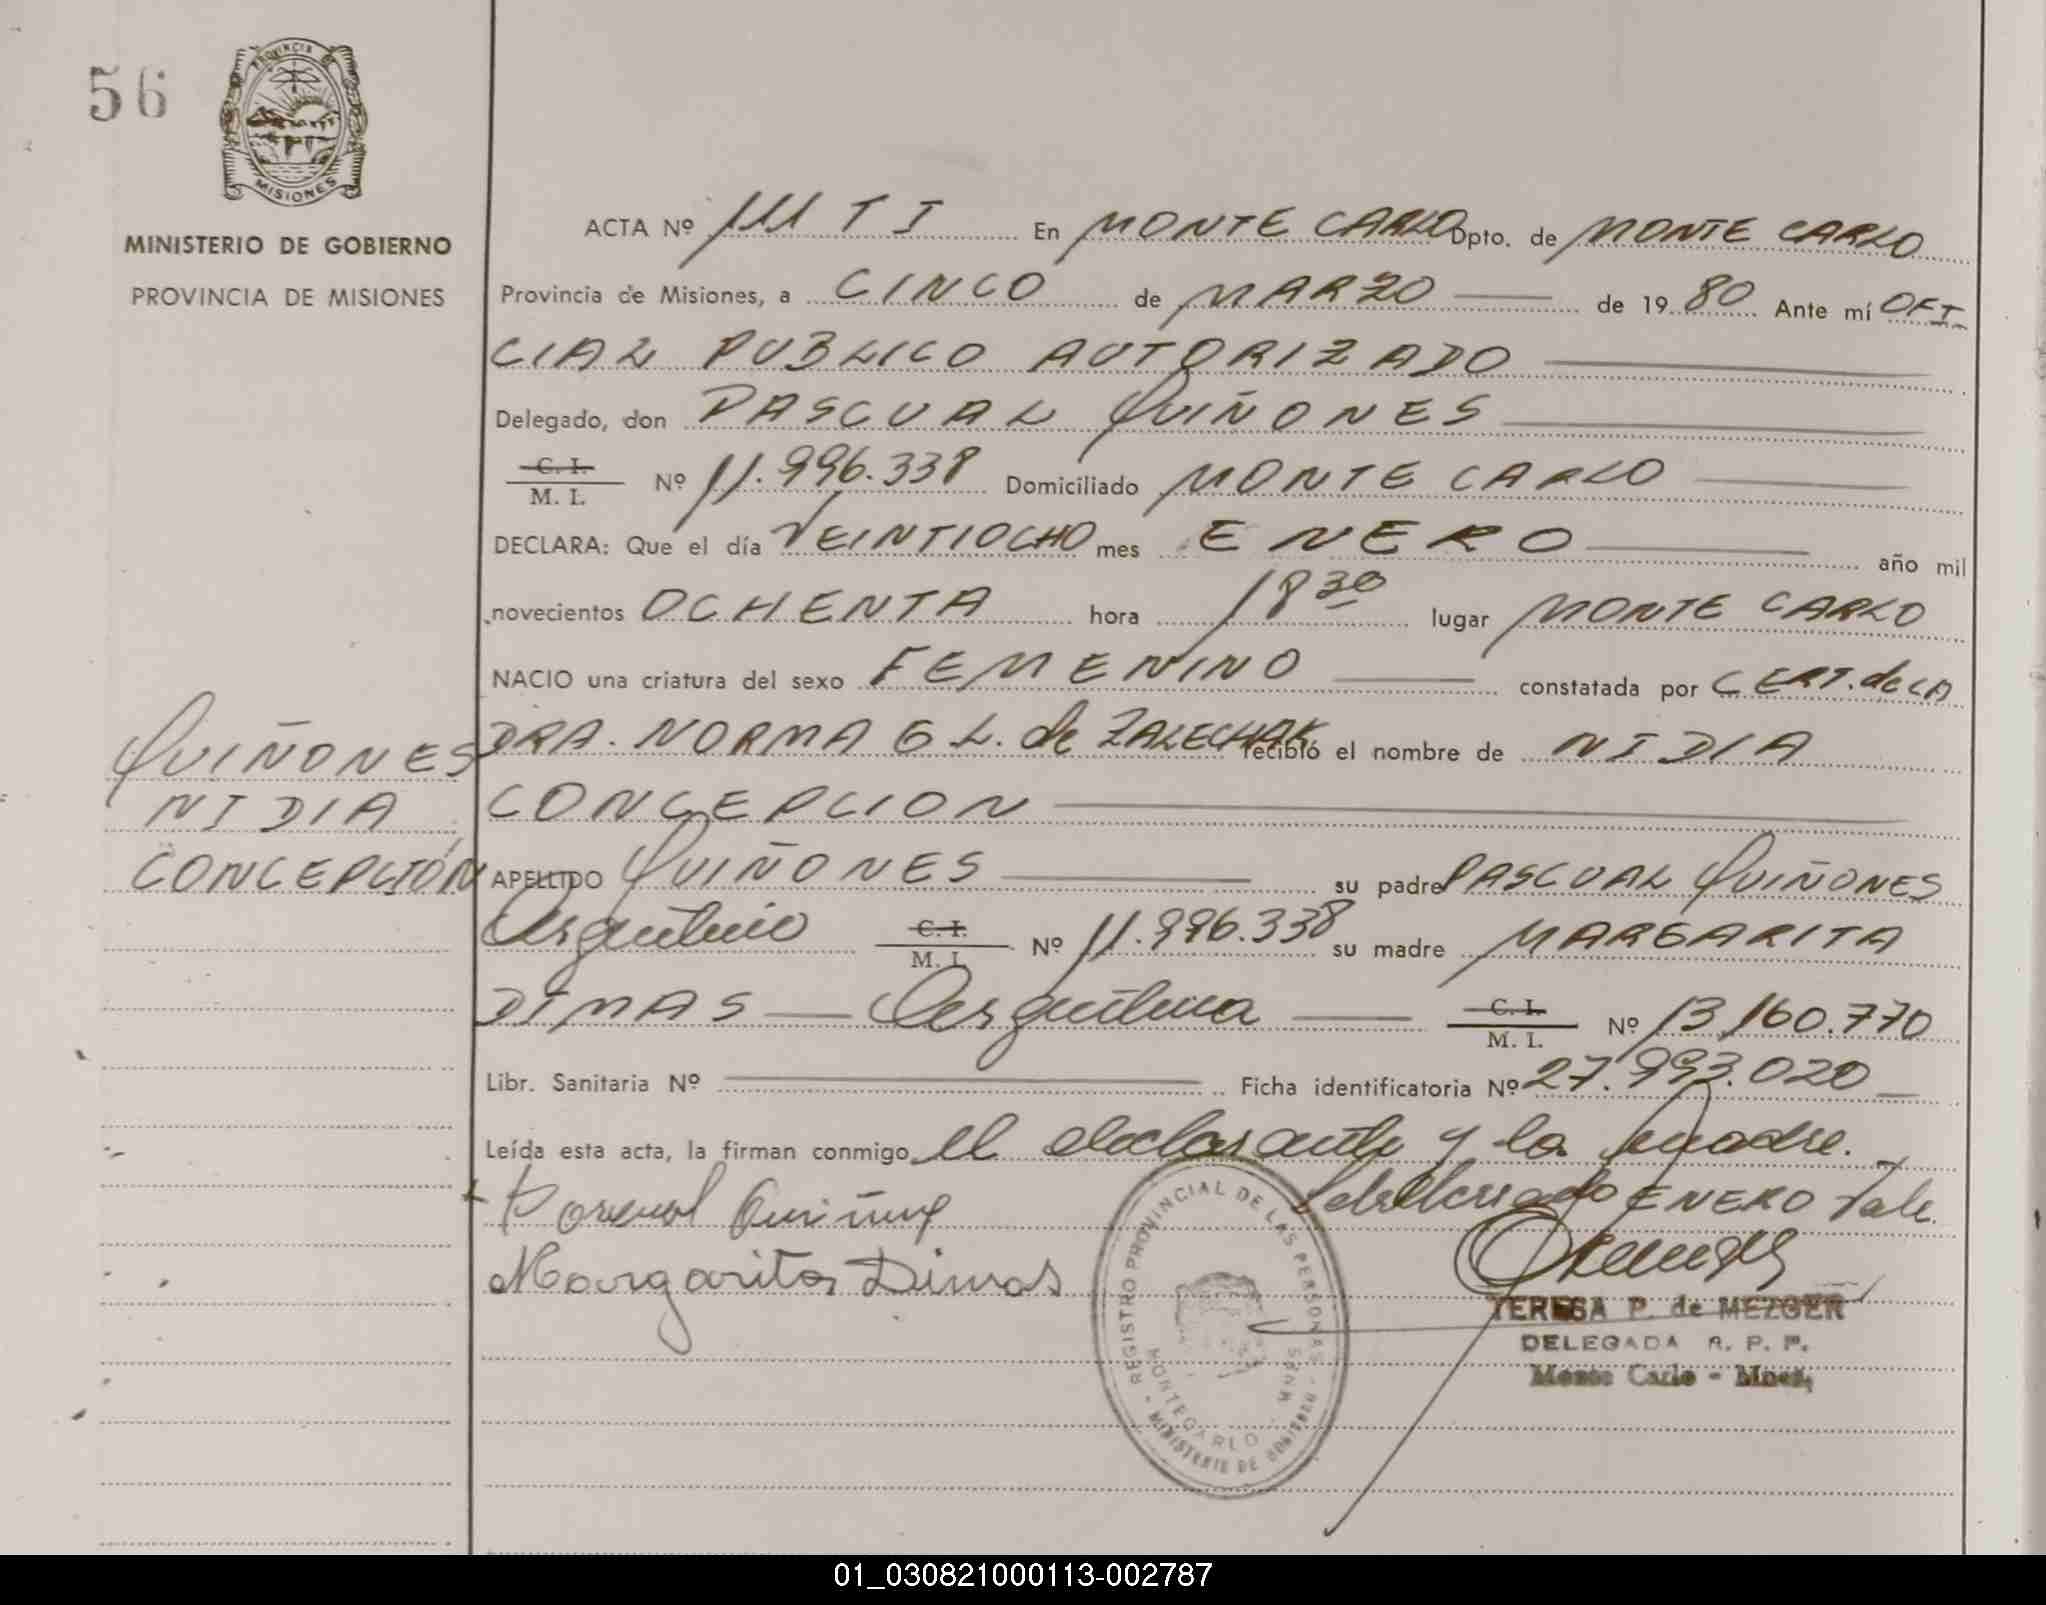 56
PROVINCIA
MISIONES
MINISTERIO DE GOBIERNO
PROVINCIA DE MISIONES
ACTA Nº 111 T I En MONTE CARLO Dpto. de MONTE CARLO
Provincia de Misiones, a CINCO de MARZO de 19 80 Ante mí OFI
CIAL PUBLICO AUTORIZADO
Delegado, don PASCUAL QUIÑONES
C. I.
M. I. Nº 11.996.338 Domiciliado MONTE CARLO
DECLARA: Que el día VEINTIOCHO mes ENERO año mil
novecientos OCHENTA hora 18 30 lugar MONTE CARLO
NACIO una criatura del sexo FEMENINO constatada por CERT. de LA
DRA. NORMA G L. de ZALECHAK recibió el nombre de NIDIA
CONCEPCION
QUIÑONES
NIDIA
CONCEPCIÓN
APELLIDO QUIÑONES su padre PASCUAL QUIÑONES
Argentino C. I. M. I. Nº 11.996.338 su madre MARGARITA
DIMAS Argentina C. I. M. I. Nº 13.160.770
Libr. Sanitaria Nº Ficha identificatoria Nº 27.993.020
Leída esta acta, la firman conmigo el declarante y la madre.
ENERO Vale.
Margarita Dimas
REGISTRO PROVINCIAL DE LAS PERSONAS
MONTECARLO
MINISTERIO DE GOBIERNO
TERESA P. de MEZGER
DELEGADA R. P. P.
Monte Carlo - Mnes.
01_030821000113-002787